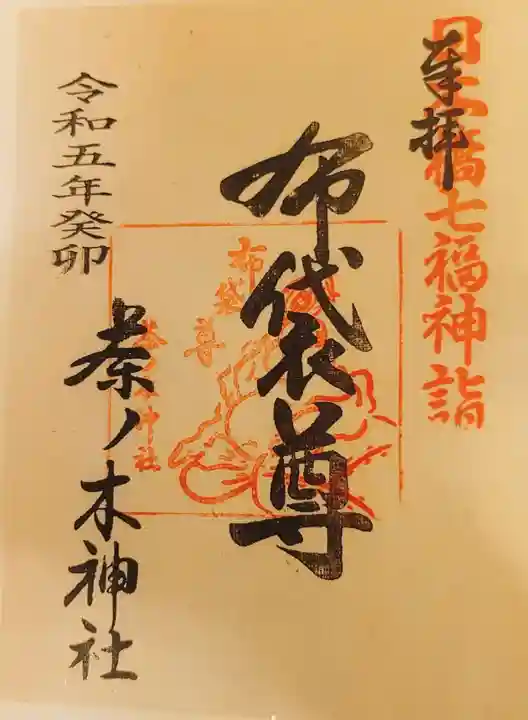 日本橋七福神詣
奉拝
布袋尊
布袋尊
茶ノ木神社
令和五年癸卯
茶ノ木神社